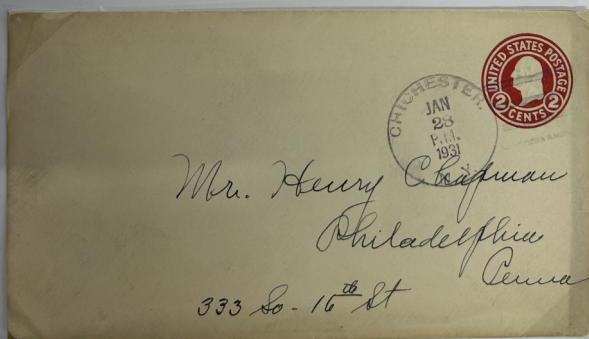 UNITED STATES POSTAGE
2 CENTS 2
CHICHESTER,
JAN
28
P.M.
1931
N.Y.
Mr. Henry Chapman
Philadelphia
Penna
333 So - 16th St